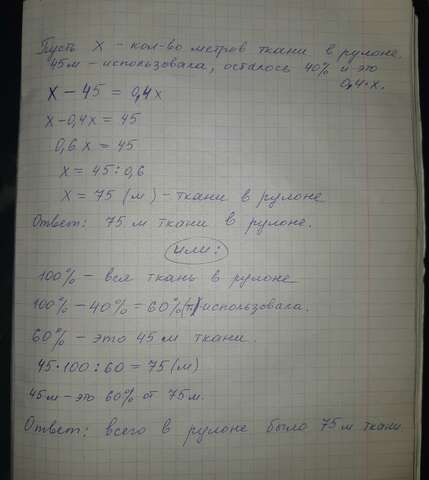 Пусть x - кол-во метров ткани в рулоне.
45м - использовала, осталось 40% и это
0,4·x.
x - 45 = 0,4x
x - 0,4x = 45
0,6x = 45
x = 45 : 0,6
x = 75 (м) - ткани в рулоне
Ответ: 75 м ткани в рулоне.
или:
100% - вся ткань в рулоне
100% - 40% = 60% - использовала.
60% - это 45 м ткани.
45·100 : 60 = 75 (м)
45м - это 60% от 75м.
Ответ: всего в рулоне было 75 м ткани